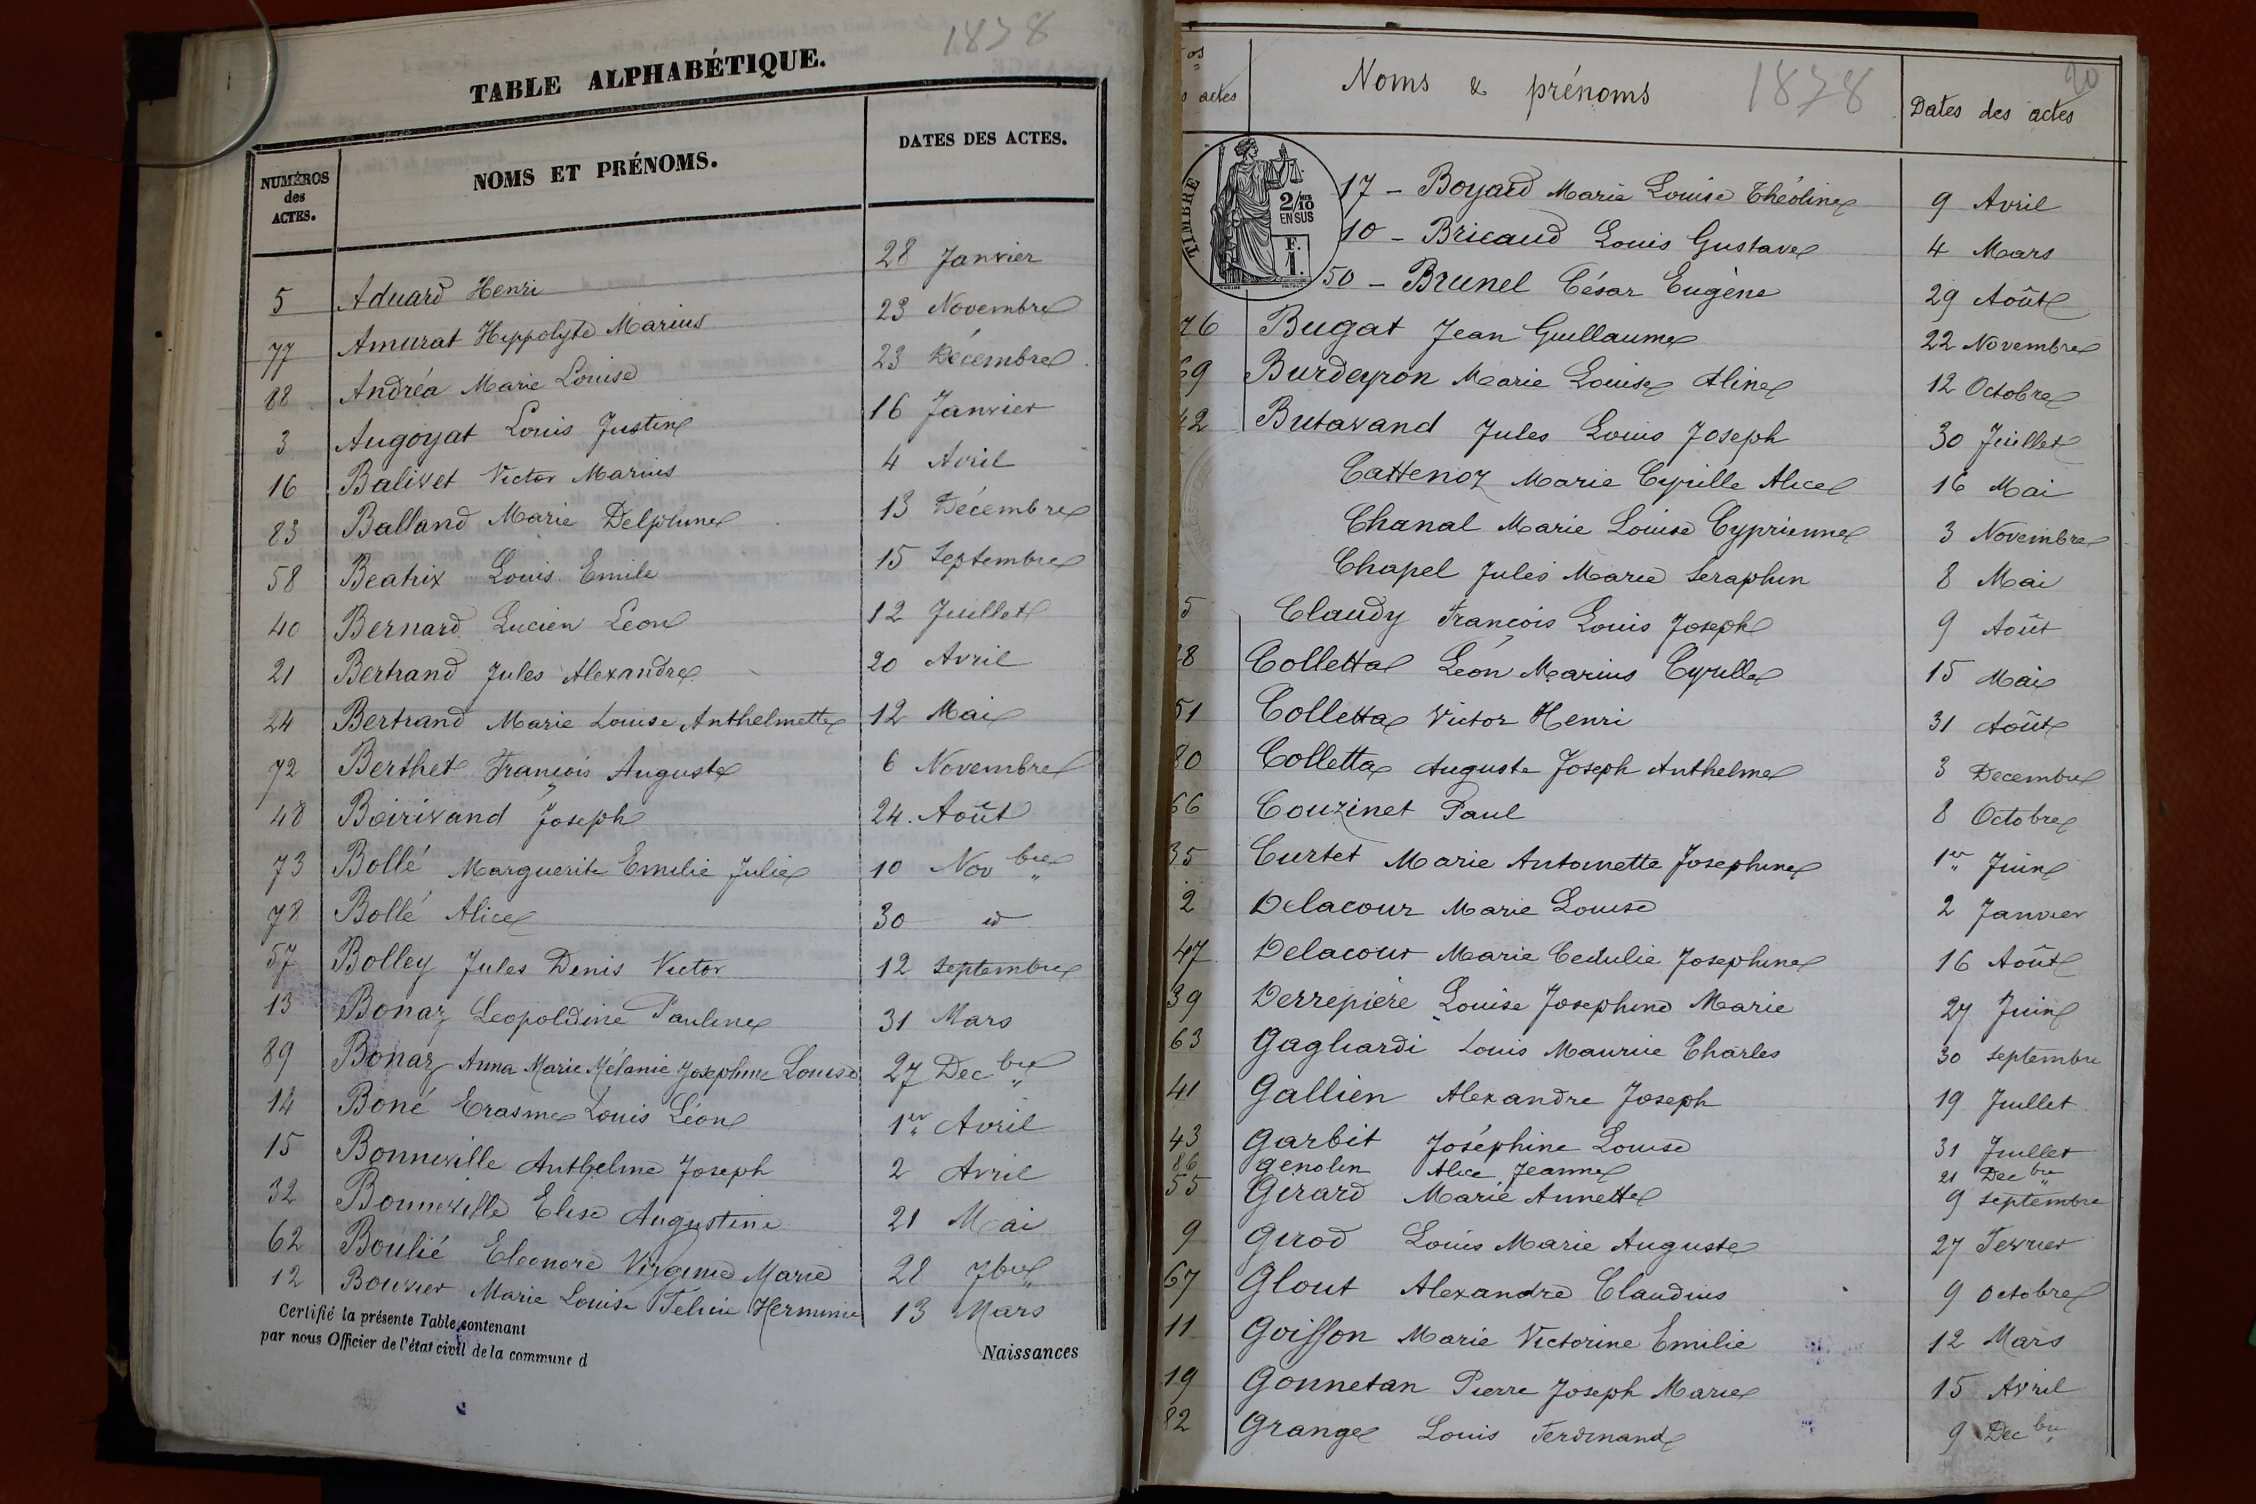 1878
TABLE ALPHABÉTIQUE.
NUMÉROS des ACTES. NOMS ET PRÉNOMS. DATES DES ACTES.
5 Aduard Henri 28 Janvier
77 Amurat Hyppolyte Marius 23 Novembre
88 Andréa Marie Louise 23 Décembre
3 Augoyat Louis Justin 16 Janvier
16 Balivet Victor Marius 4 Avril
83 Balland Marie Delphine 13 Décembre
58 Beatrix Louis Emile 15 Septembre
40 Bernard Lucien Leon 12 Juillet
21 Bertrand Jules Alexandre 20 Avril
24 Bertrand Marie Louise Anthelmette 12 Mai
72 Berthet François Auguste 6 Novembre
48 Boirivand Joseph 24 Août
73 Bollé Marguerite Emilie Julie 10 Novbre
78 Bollé Alice 30 id
57 Bolley Jules Denis Victor 12 Septembre
13 Bonaz Leopoldine Pauline 31 Mars
89 Bonaz Anna Marie Mélanie Josephine Louise 27 Decbre
14 Boné Erasme Louis Léon 1er Avril
15 Bonneville Anthelme Joseph 2 Avril
32 Bonneville Elise Augustine 21 Mai
62 Boulié Eleonore Virginie Marie 28 7bre
12 Bouvier Marie Louise Félicie Herminie 13 Mars
Certifié la présente Table, contenant Naissances
par nous Officier de l'état civil de la commune d
20
os
s actes Noms & prénoms 1878 Dates des actes
TIMBRE
2/10 EN SUS
F. 1.
17 - Boyard Marie Louise Théoline 9 Avril
10 - Bricaud Louis Gustave 4 Mars
50 - Brunel César Eugène 29 Août
76 Bugat Jean Guillaume 22 Novembre
69 Burdeyron Marie Louise Aline 12 Octobre
42 Butavand Jules Louis Joseph 30 Juillet
Cattenoz Marie Cyrille Alice 16 Mai
Chanal Marie Louise Cyprienne 3 Novembre
Chapel Jules Marie Seraphin 8 Mai
5 Claudy François Louis Joseph 9 Août
28 Colletta Léon Marius Cyrille 15 Mai
51 Colletta Victor Henri 31 Août
80 Colletta Auguste Joseph Anthelme 3 Decembre
66 Couzinet Paul 8 Octobre
35 Curtet Marie Antoinette Josephine 1er Juin
2 Delacour Marie Louise 2 Janvier
47 Delacour Marie Cedulie Josephine 16 Août
39 Derrepière Louise Josephine Marie 27 Juin
63 Gagliardi Louis Maurice Charles 30 Septembre
41 Gallien Alexandre Joseph 19 Juillet
43 Garbit Joséphine Louise 31 Juillet
86 Genolin Alice Jeanne 21 Decbre
55 Gerard Marie Annette 9 Septembre
9 Girod Louis Marie Auguste 27 Fevrier
67 Glout Alexandre Claudius 9 Octobre
11 Goiffon Marie Victorine Emilie 12 Mars
19 Gonnetan Pierre Joseph Marie 15 Avril
82 Grange Louis Ferdinand 9 Decbre